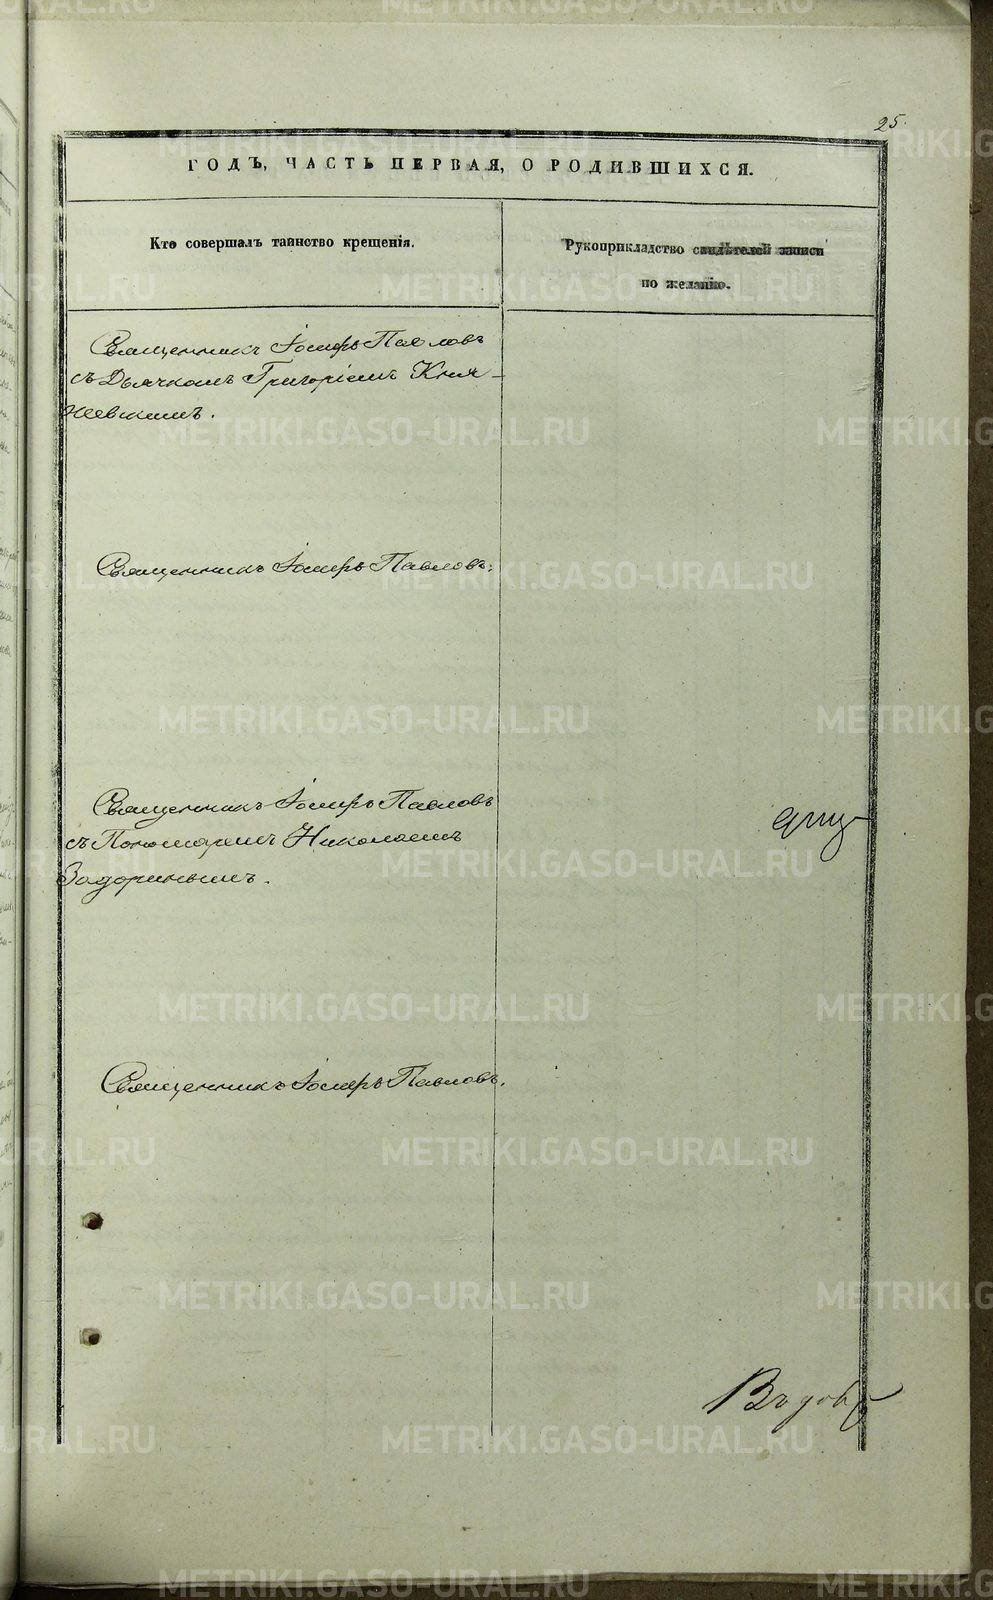 25.
ГОДЪ, ЧАСТЬ ПЕРВАЯ, О РОДИВШИХСЯ.
Кто совершалъ таинство крещенія.
Рукоприкладство свидѣтелей записи
по желанію.
Священникъ Іосифъ Павловъ
съ Дьячкомъ Григоріемъ Княжевскимъ.
Священникъ Іосифъ Павловъ.
Священникъ Іосифъ Павловъ
съ Пономаремъ Николаемъ
Задоринымъ.
Священникъ Іосифъ Павловъ.
METRIKI.GASO-URAL.RU